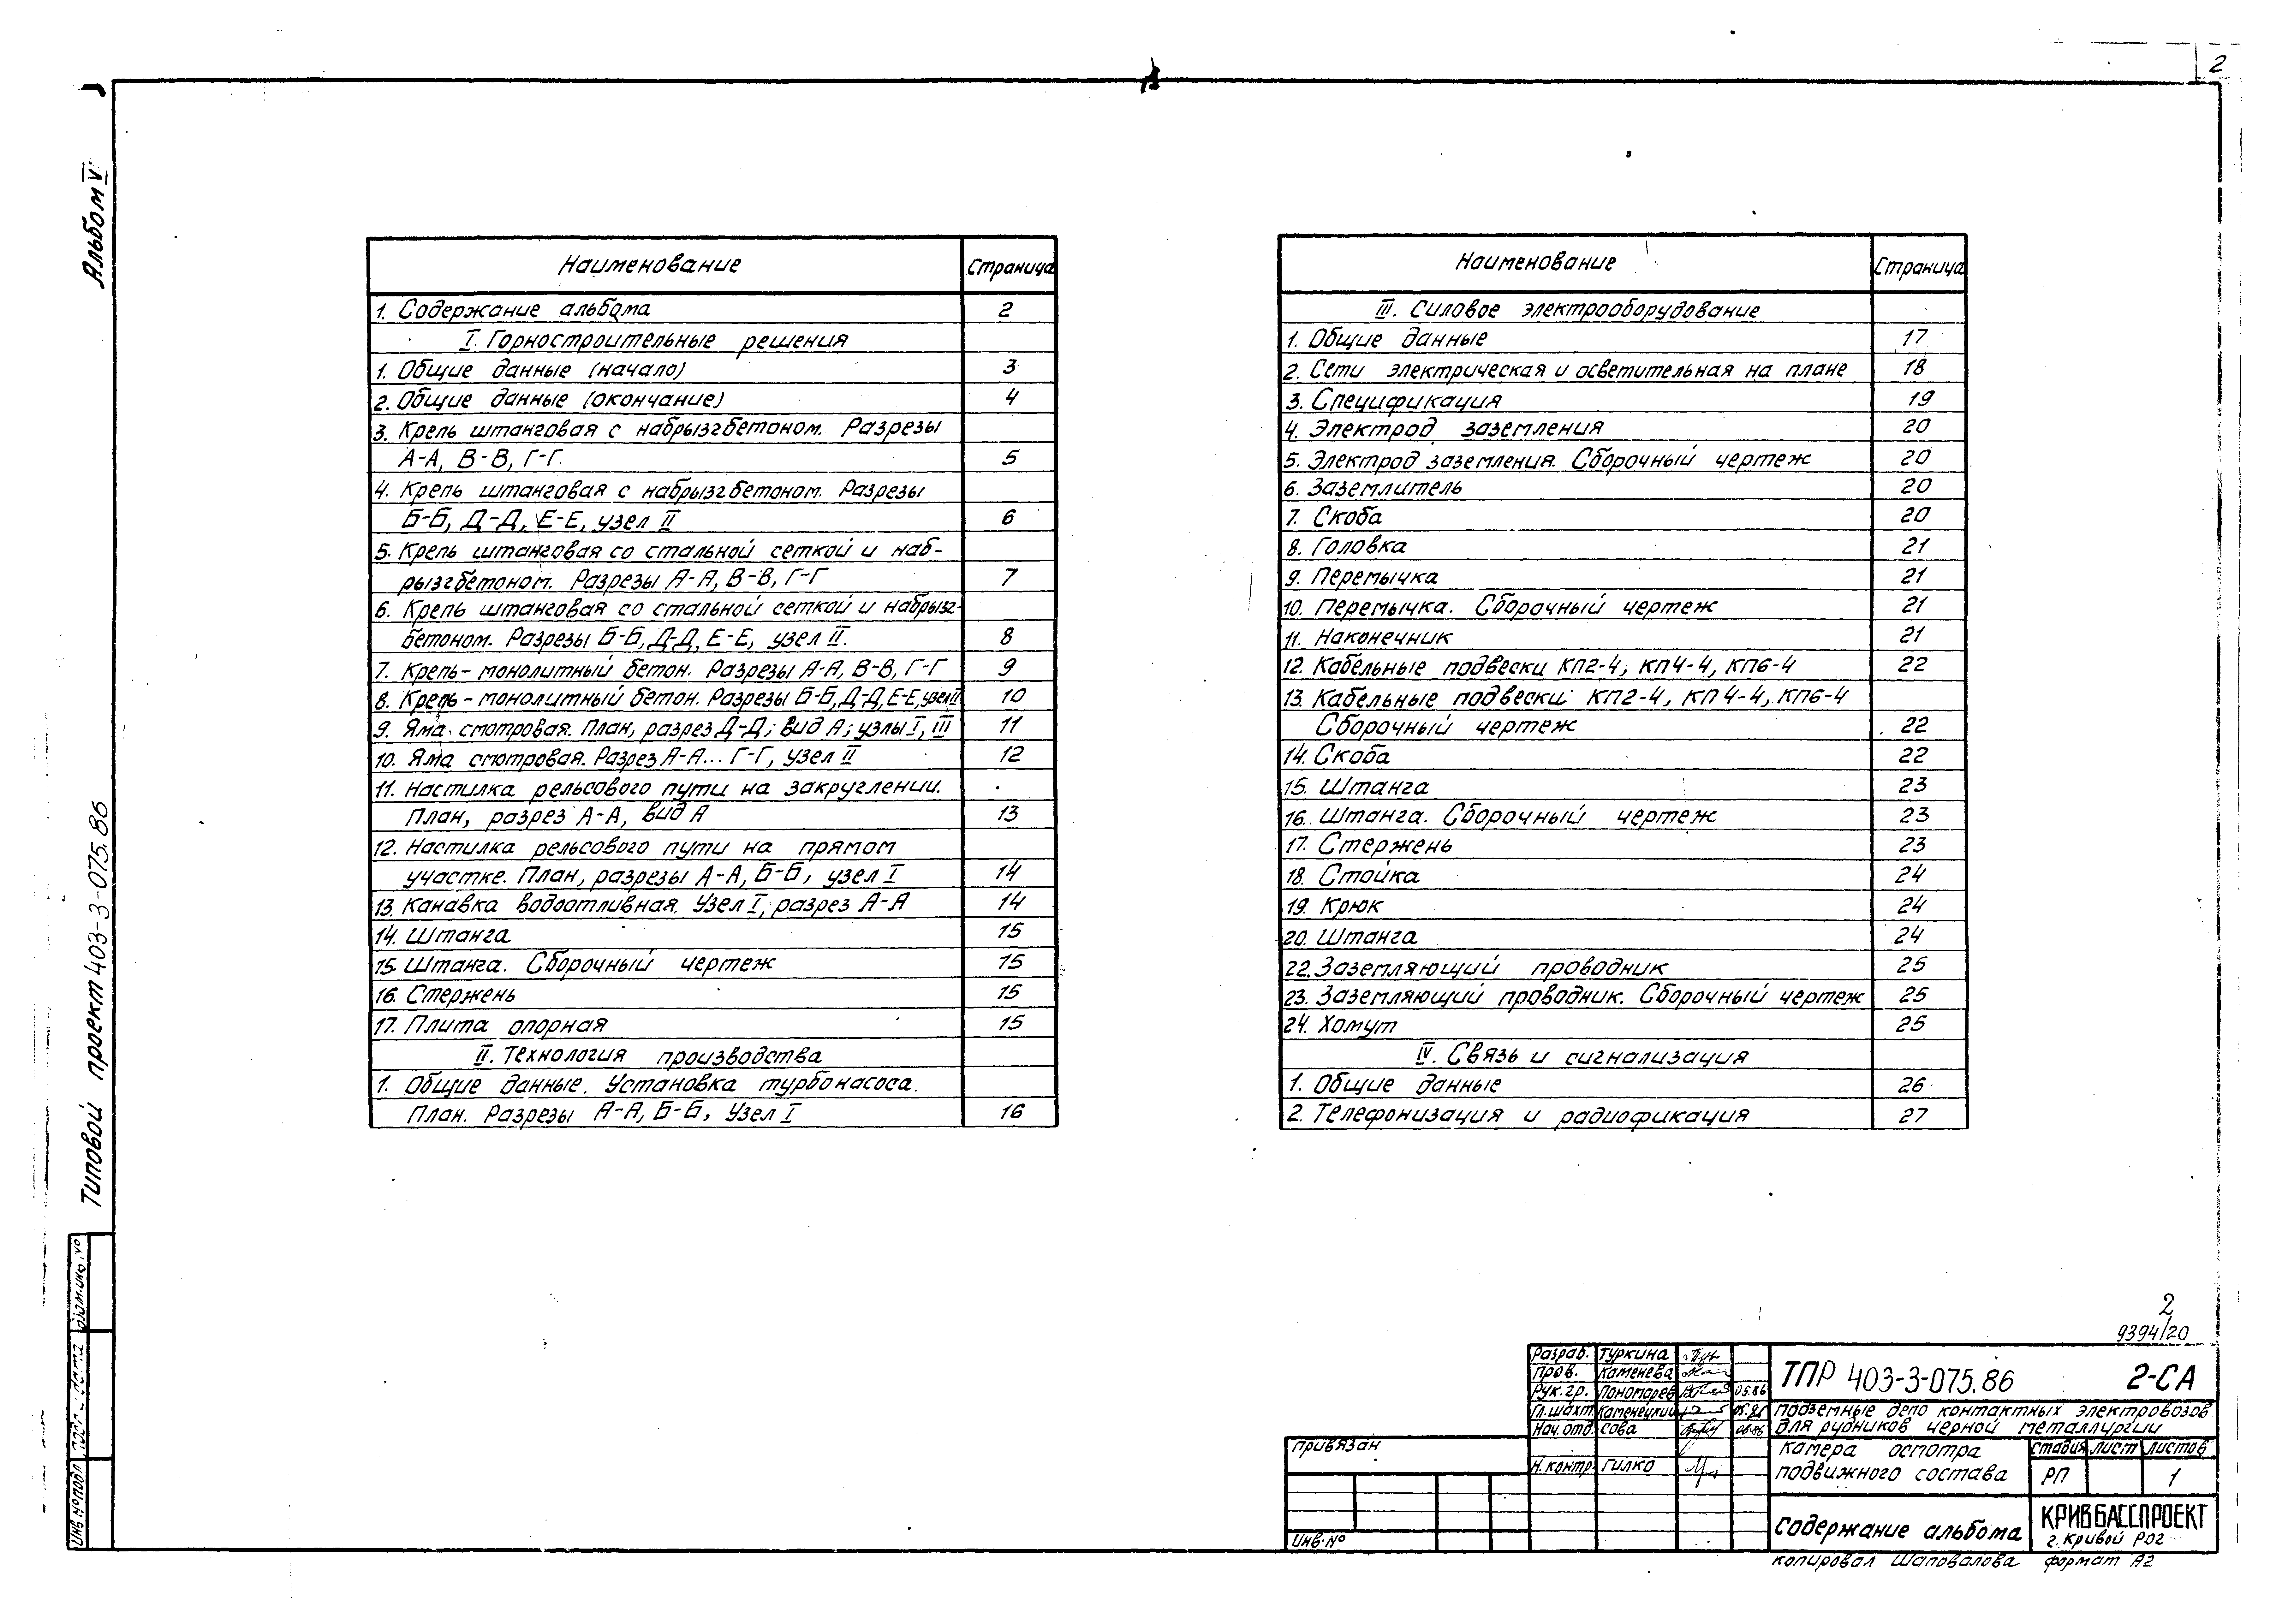 2
Альбом V
Типовой проект 403-3-075.86
Наименование Страница
1. Содержание альбома 2
I. Горностроительные решения
1. Общие данные (начало) 3
2. Общие данные (окончание) 4
3. Крепь штанговая с набрызгбетоном. Разрезы
А-А, В-В, Г-Г. 5
4. Крепь штанговая с набрызгбетоном. Разрезы
Б-Б, Д-Д, Е-Е, узел II 6
5. Крепь штанговая со стальной сеткой и наб-
рызгбетоном. Разрезы А-А, В-В, Г-Г 7
6. Крепь штанговая со стальной сеткой и набрызг-
бетоном. Разрезы Б-Б, Д-Д, Е-Е, узел II. 8
7. Крепь-монолитный бетон. Разрезы А-А, В-В, Г-Г 9
8. Крепь-монолитный бетон. Разрезы Б-Б, Д-Д, Е-Е, узел II 10
9. Яма смотровая. План, разрез Д-Д; вид А; узлы I, III 11
10. Яма смотровая. Разрез А-А... Г-Г, узел II 12
11. Настилка рельсового пути на закруглении.
План, разрез А-А, вид А 13
12. Настилка рельсового пути на прямом
участке. План, разрезы А-А, Б-Б, узел I 14
13. Канавка водоотливная. Узел I, разрез А-А 14
14. Штанга 15
15. Штанга. Сборочный чертеж 15
16. Стержень 15
17. Плита опорная 15
II. Технология производства
1. Общие данные. Установка турбонасоса.
План. Разрезы А-А, Б-Б, Узел I 16
Наименование Страница
III. Силовое электрооборудование
1. Общие данные 17
2. Сети электрическая и осветительная на плане 18
3. Спецификация 19
4. Электрод заземления 20
5. Электрод заземления. Сборочный чертеж 20
6. Заземлитель 20
7. Скоба 20
8. Головка 21
9. Перемычка 21
10. Перемычка. Сборочный чертеж 21
11. Наконечник 21
12. Кабельные подвески КП2-4, КП4-4, КП6-4 22
13. Кабельные подвески КП2-4, КП4-4, КП6-4
Сборочный чертеж 22
14. Скоба 22
15. Штанга 23
16. Штанга. Сборочный чертеж 23
17. Стержень 23
18. Стойка 24
19. Крюк 24
20. Штанга 24
22. Заземляющий проводник 25
23. Заземляющий проводник. Сборочный чертеж 25
24. Хомут 25
IV. Связь и сигнализация
1. Общие данные 26
2. Телефонизация и радиофикация 27
2
9394/20
Разраб. Туркина
Пров. Каменева
Рук. гр. Пономарев 05.86
Гл. шахт. Каменецкий 05.86
Нач. отд. Сова 06.86
Н. контр. Гилко
ТПР 403-3-075.86 2-СА
Подземные депо контактных электровозов
для рудников черной металлургии
Камера осмотра
подвижного состава
Стадия Лист Листов
РП 1
Содержание альбома
КРИВБАССПРОЕКТ
г. Кривой Рог
Привязан
Инв. №
Копировал Шаповалова Формат А2
Взам. инв. №
Подп. и дата
Инв. № подл.